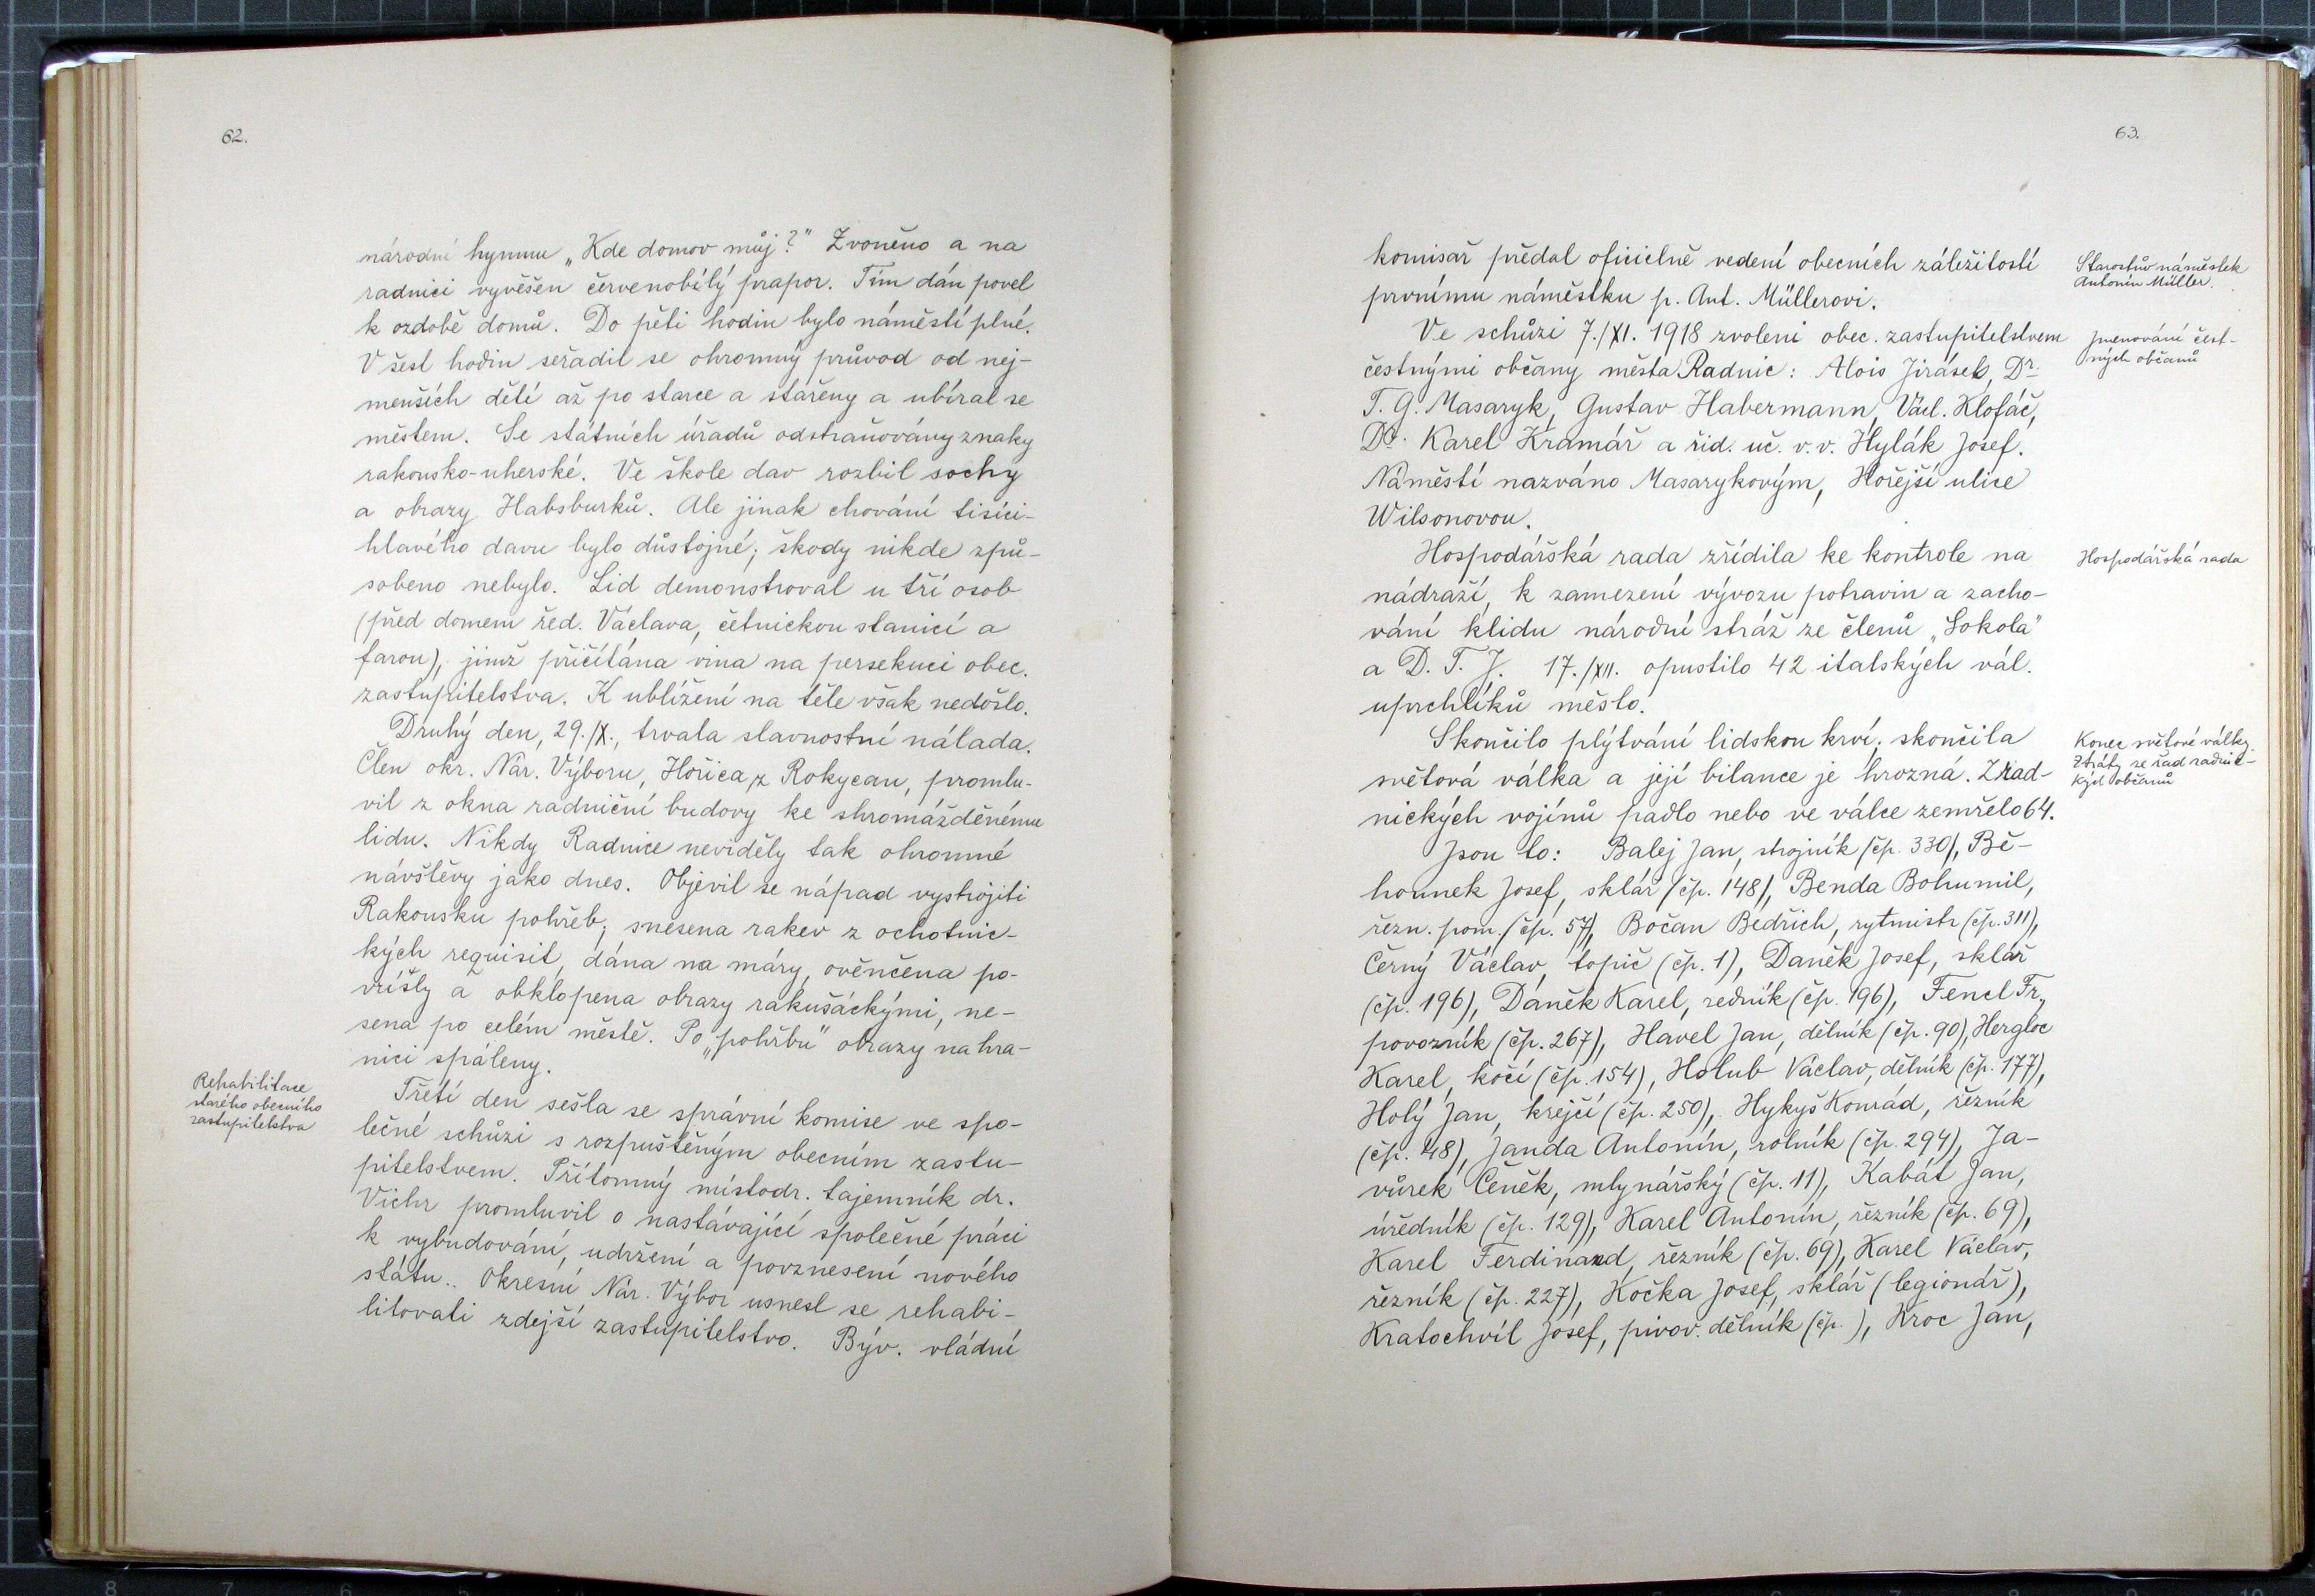 62.
národní hymnu „Kde domov můj?" Zvoněno a na
radnici vyvěšen červenobílý prapor. Tím dán povel
k ozdobě domů. Do pěti hodin bylo náměstí plné.
V šest hodin seřadil se ohromný průvod od nej-
menších dětí až po starce a stařeny a ubíral se
městem. Se státních úřadů odstraňovány znaky
rakousko-uherské. Ve škole dav rozbil sochy
a obrazy Habsburků. Ale jinak chování tisíci-
hlavého davu bylo důstojné; škody nikde způ-
sobeno nebylo. Lid demonstroval u tří osob
(před domem řed. Václava, četnickou stanicí a
farou), jimž přičítána vina na persekuci obec.
zastupitelstva. K ublížení na těle však nedošlo.
Druhý den, 29./X., trvala slavnostní nálada.
Člen okr. Nár. Výboru, Hořica z Rokycan, promlu-
vil z okna radniční budovy ke shromážděnému
lidu. Nikdy Radnice neviděly tak ohromné
návštěvy jako dnes. Objevil se nápad vystrojiti
Rakousku pohřeb; snesena rakev z ochotnic-
kých requisit, dána na máry, ověnčena po-
vřísly a obklopena obrazy rakušáckými, ne-
sena po celém městě. Po „pohřbu" obrazy na hra-
nici spáleny.
Rehabilitace
starého obecního
zastupitelstva
Třetí den sešla se správní komise ve spo-
lečné schůzi s rozpuštěným obecním zastu-
pitelstvem. Přítomný místodr. tajemník dr.
Vichr promluvil o nastávající společné práci
k vybudování, udržení a povznesení nového
státu.. Okresní Nár. Výbor usnesl se rehabi-
litovati zdejší zastupitelstvo. Býv. vládní
63.
komisař předal oficielně vedení obecních záležitostí
prvnímu náměstku p. Ant. Müllerovi.
Starostův náměstek
Antonín Müller.
Ve schůzi 7./XI. 1918 zvoleni obec. zastupitelstvem
čestnými občany města Radnic: Alois Jirásek, Dr.
T. G. Masaryk, Gustav Habermann, Václ. Klofáč,
Dr. Karel Kramář a říd. uč. v. v. Hylák Josef.
Náměstí nazváno Masarykovým, Hořejší ulice
Wilsonovou.
Jmenování čest-
ných občanů
Hospodářská rada zřídila ke kontrole na
nádraží, k zamezení vývozu potravin a zacho-
vání klidu národní stráž ze členů „Sokola"
a D. T. J. 17./XII. opustilo 42 italských vál.
uprchlíků město.
Hospodářská rada
Skončilo plýtvání lidskou krví; skončila
světová válka a její bilance je hrozná. Z rad-
nických vojínů padlo nebo ve válce zemřelo 64.
Konec světové války.
Ztráty ze řad radnic-
kých občanů
Jsou to: Balej Jan, strojník (čp. 330), Bě-
hounek Josef, sklář (čp. 148), Benda Bohumil,
řezn. pom. (čp. 57), Bočan Bedřich, rytmistr (čp. 311),
Černý Václav, topič (čp. 1), Daněk Josef, sklář
(čp. 196), Daněk Karel, zedník (čp. 196), Fencl Fr.,
povozník (čp. 267), Havel Jan, dělník (čp. 90), Hergloc
Karel, kočí (čp. 154), Holub Václav, dělník (čp. 177),
Holý Jan, krejčí (čp. 250), Hykyš Konrád, řezník
(čp. 48), Janda Antonín, rolník (čp. 294), Ja-
vůrek Čeněk, mlynářský (čp. 11), Kabát Jan,
úředník (čp. 129), Karel Antonín, řezník (čp. 69),
Karel Ferdinand, řezník (čp. 69), Karel Václav,
řezník (čp. 227), Kočka Josef, sklář (legionář),
Kratochvíl Josef, pivov. dělník (čp. ), Kroc Jan,